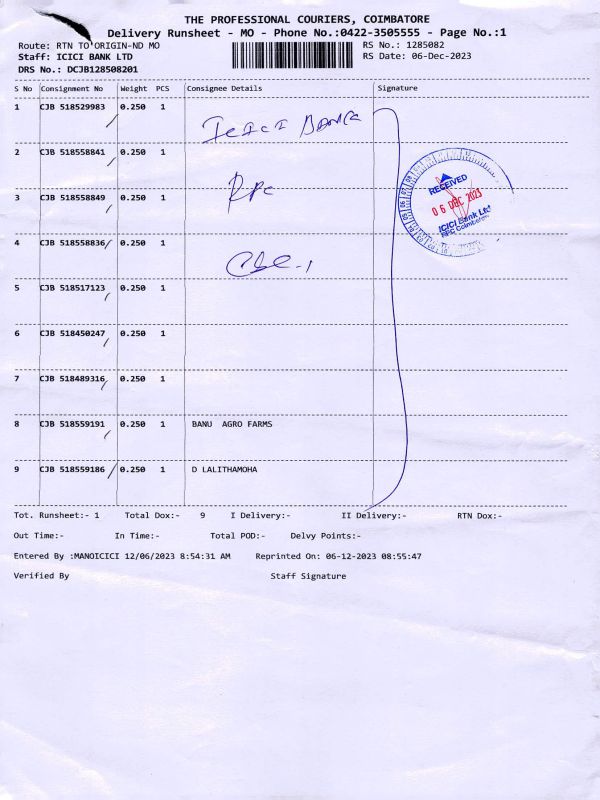 THE PROFESSIONAL COURIERS, COIMBATORE
Delivery Runsheet - MO - Phone No.:0422-3505555 - Page No.:1
Route: RTN TO ORIGIN-ND MO RS No.: 1285082
Staff: ICICI BANK LTD RS Date: 06-Dec-2023
DRS No.: DCJB128508201
S No Consignment No Weight PCS Consignee Details Signature
1 CJB 518529983 0.250 1
ICICI BANK
2 CJB 518558841 0.250 1
RPC
3 CJB 518558849 0.250 1
4 CJB 518558836 0.250 1
5 CJB 518517123 0.250 1
6 CJB 518450247 0.250 1
7 CJB 518489316 0.250 1
8 CJB 518559191 0.250 1 BANU AGRO FARMS
9 CJB 518559186 0.250 1 D LALITHAMOHA
RECEIVED
06 DEC 2023
ICICI Bank Ltd
RPC Coimbatore
Tot. Runsheet:- 1 Total Dox:- 9 I Delivery:- II Delivery:- RTN Dox:-
Out Time:- In Time:- Total POD:- Delvy Points:-
Entered By :MANOICICI 12/06/2023 8:54:31 AM Reprinted On: 06-12-2023 08:55:47
Verified By Staff Signature